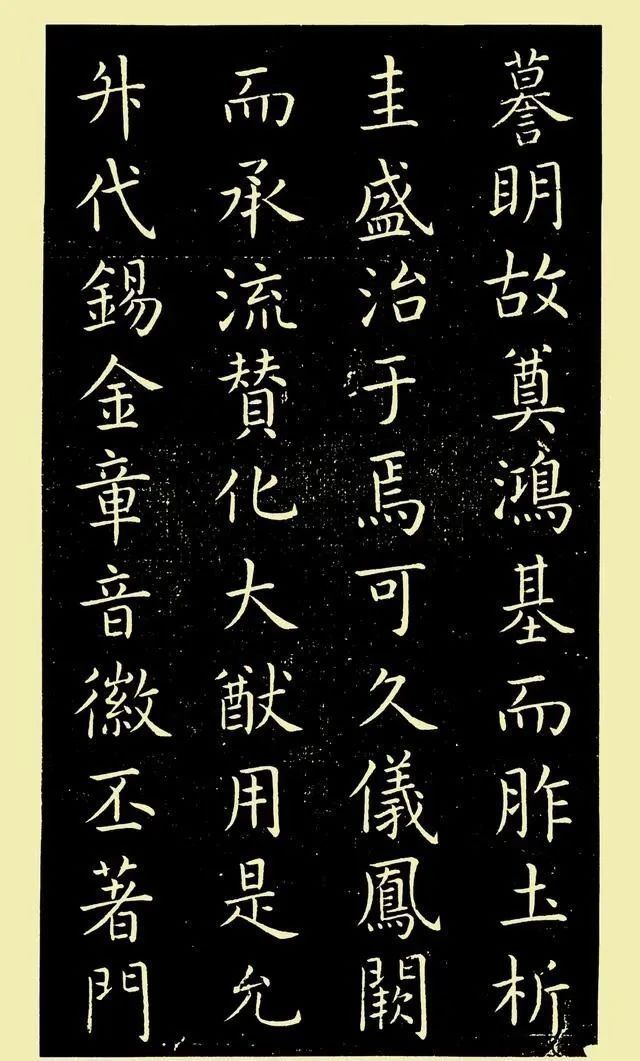 謩明故奠鴻基而胙土析
圭盛治于焉可久儀鳳闕
而承流贊化大猷用是允
升代錫金章音徽丕著門